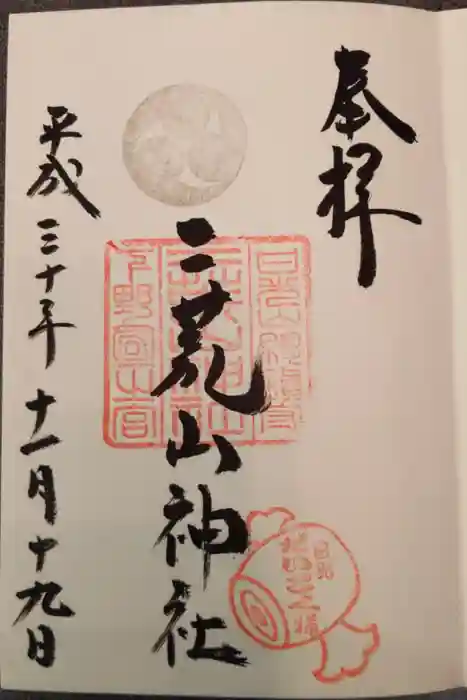 奉拝
二荒山神社
平成三十年十一月十九日
下野國一之宮
二荒山神社
日光